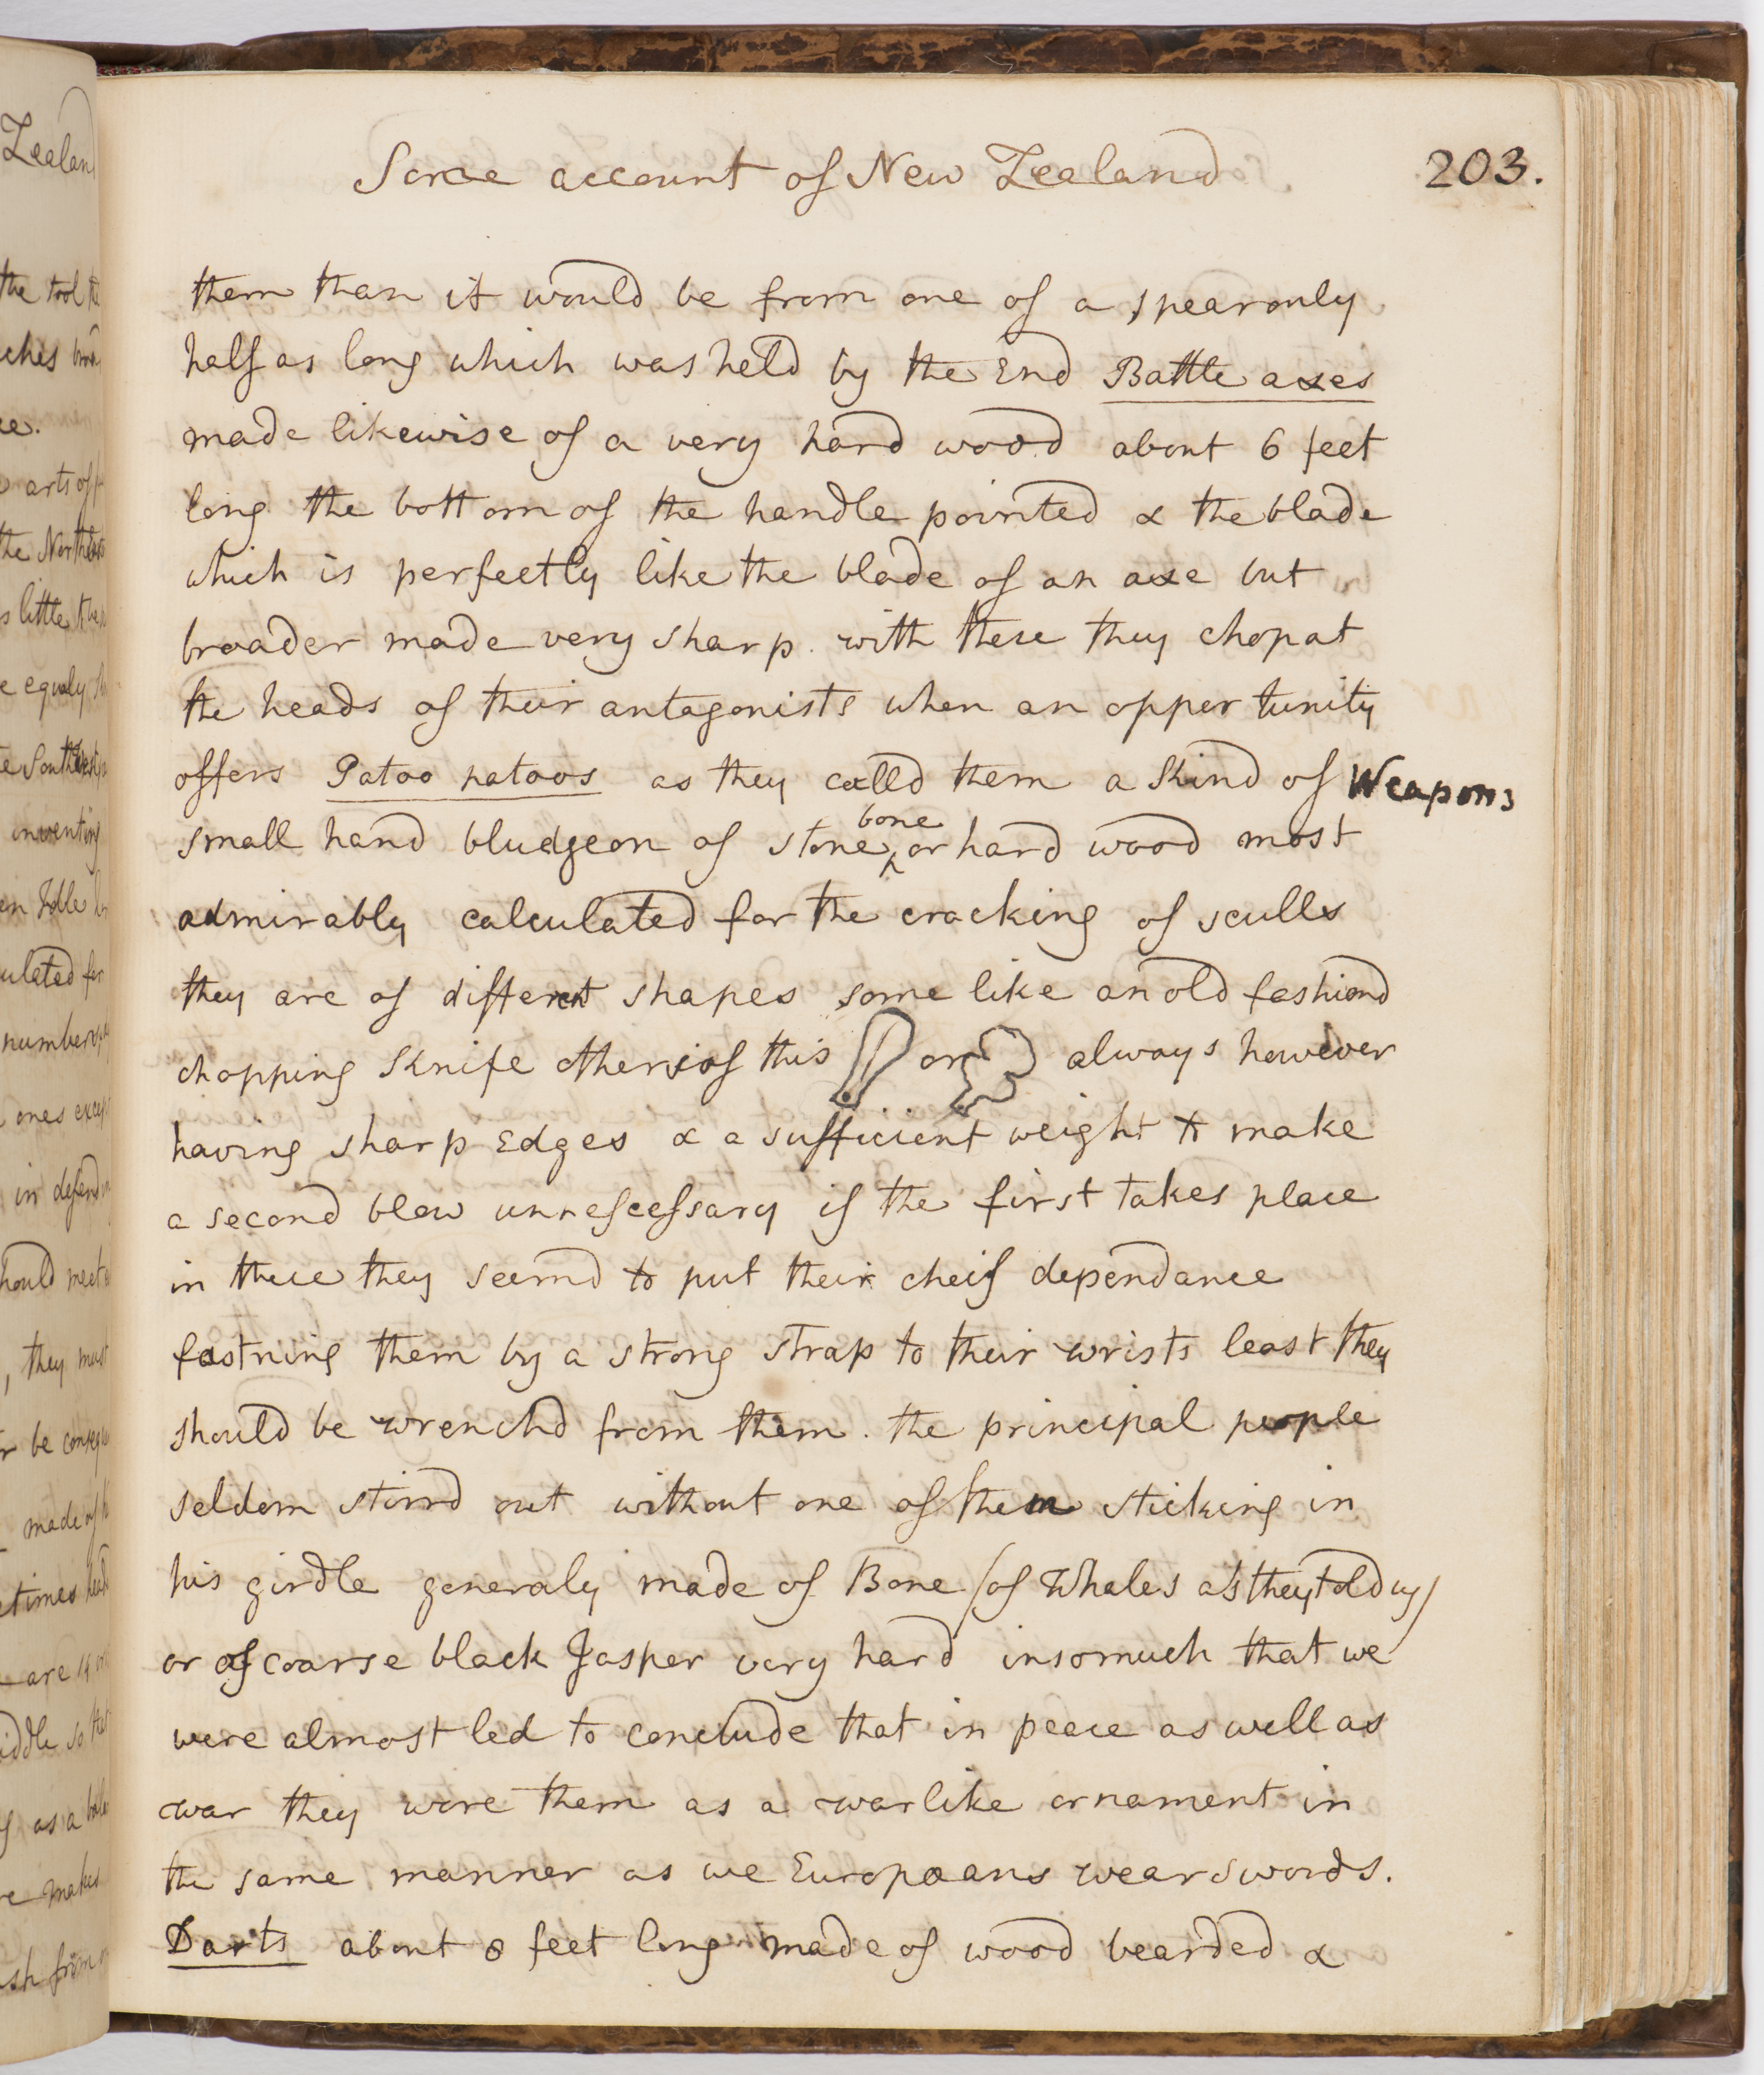 Some account of New Zealand 203.
them than it would be from one of a spear only
half as long which was held by the End Battle axes
made likewise of a very hard wood about 6 feet
long the bottom of the handle pointed & the blade
which is perfectly like the blade of an axe but
broader made very sharp. with these they chop at
the heads of their antagonists when an opportunity
offers Patoo patoos as they calld them a kind of Weapons
bone
small hand bludgeon of stone ‸ or hard wood most
admirably calculated for the cracking of sculls
they are of different shapes some like an old fashiond
chopping knife others of this or always however
having sharp Edges & a sufficient weight to make
a second blow unnescessary if the first takes place
in these they seemd to put their cheif dependance
fastning them by a strong strap to their wrists least they
should be wrenchd from them. the principal people
seldom stirrd out without one of them sticking in
his girdle generaly made of Bone (of Whales as they told us)
or of coarse black Jasper very hard insomuch that we
were almost led to conclude that in peace as well as
war they wore them as a warlike ornament in
the same manner as we Europæans wear swords.
Darts about 8 feet long made of wood bearded &
Zealan
the tool
ches
arts of
the
little
equaly
inventing
in Idle
ulated for
number
ones
in
hould meet
, they must
r be
made of
times
are 14
iddle so
as a
makes
sh from